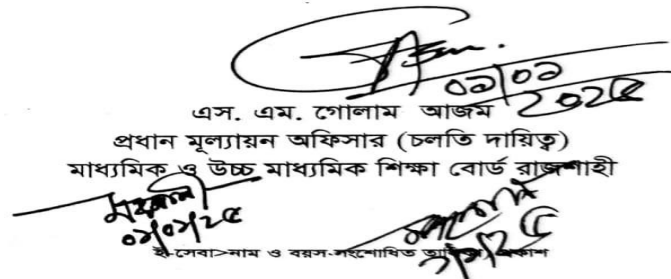 ০৯|০৯
২০২৫
এস. এম. গোলাম আজম
প্রধান মূল্যায়ন অফিসার (চলতি দায়িত্ব)
মাধ্যমিক ও উচ্চ মাধ্যমিক শিক্ষা বোর্ড রাজশাহী
সেবা>নাম ও বয়স-সংশোধিত